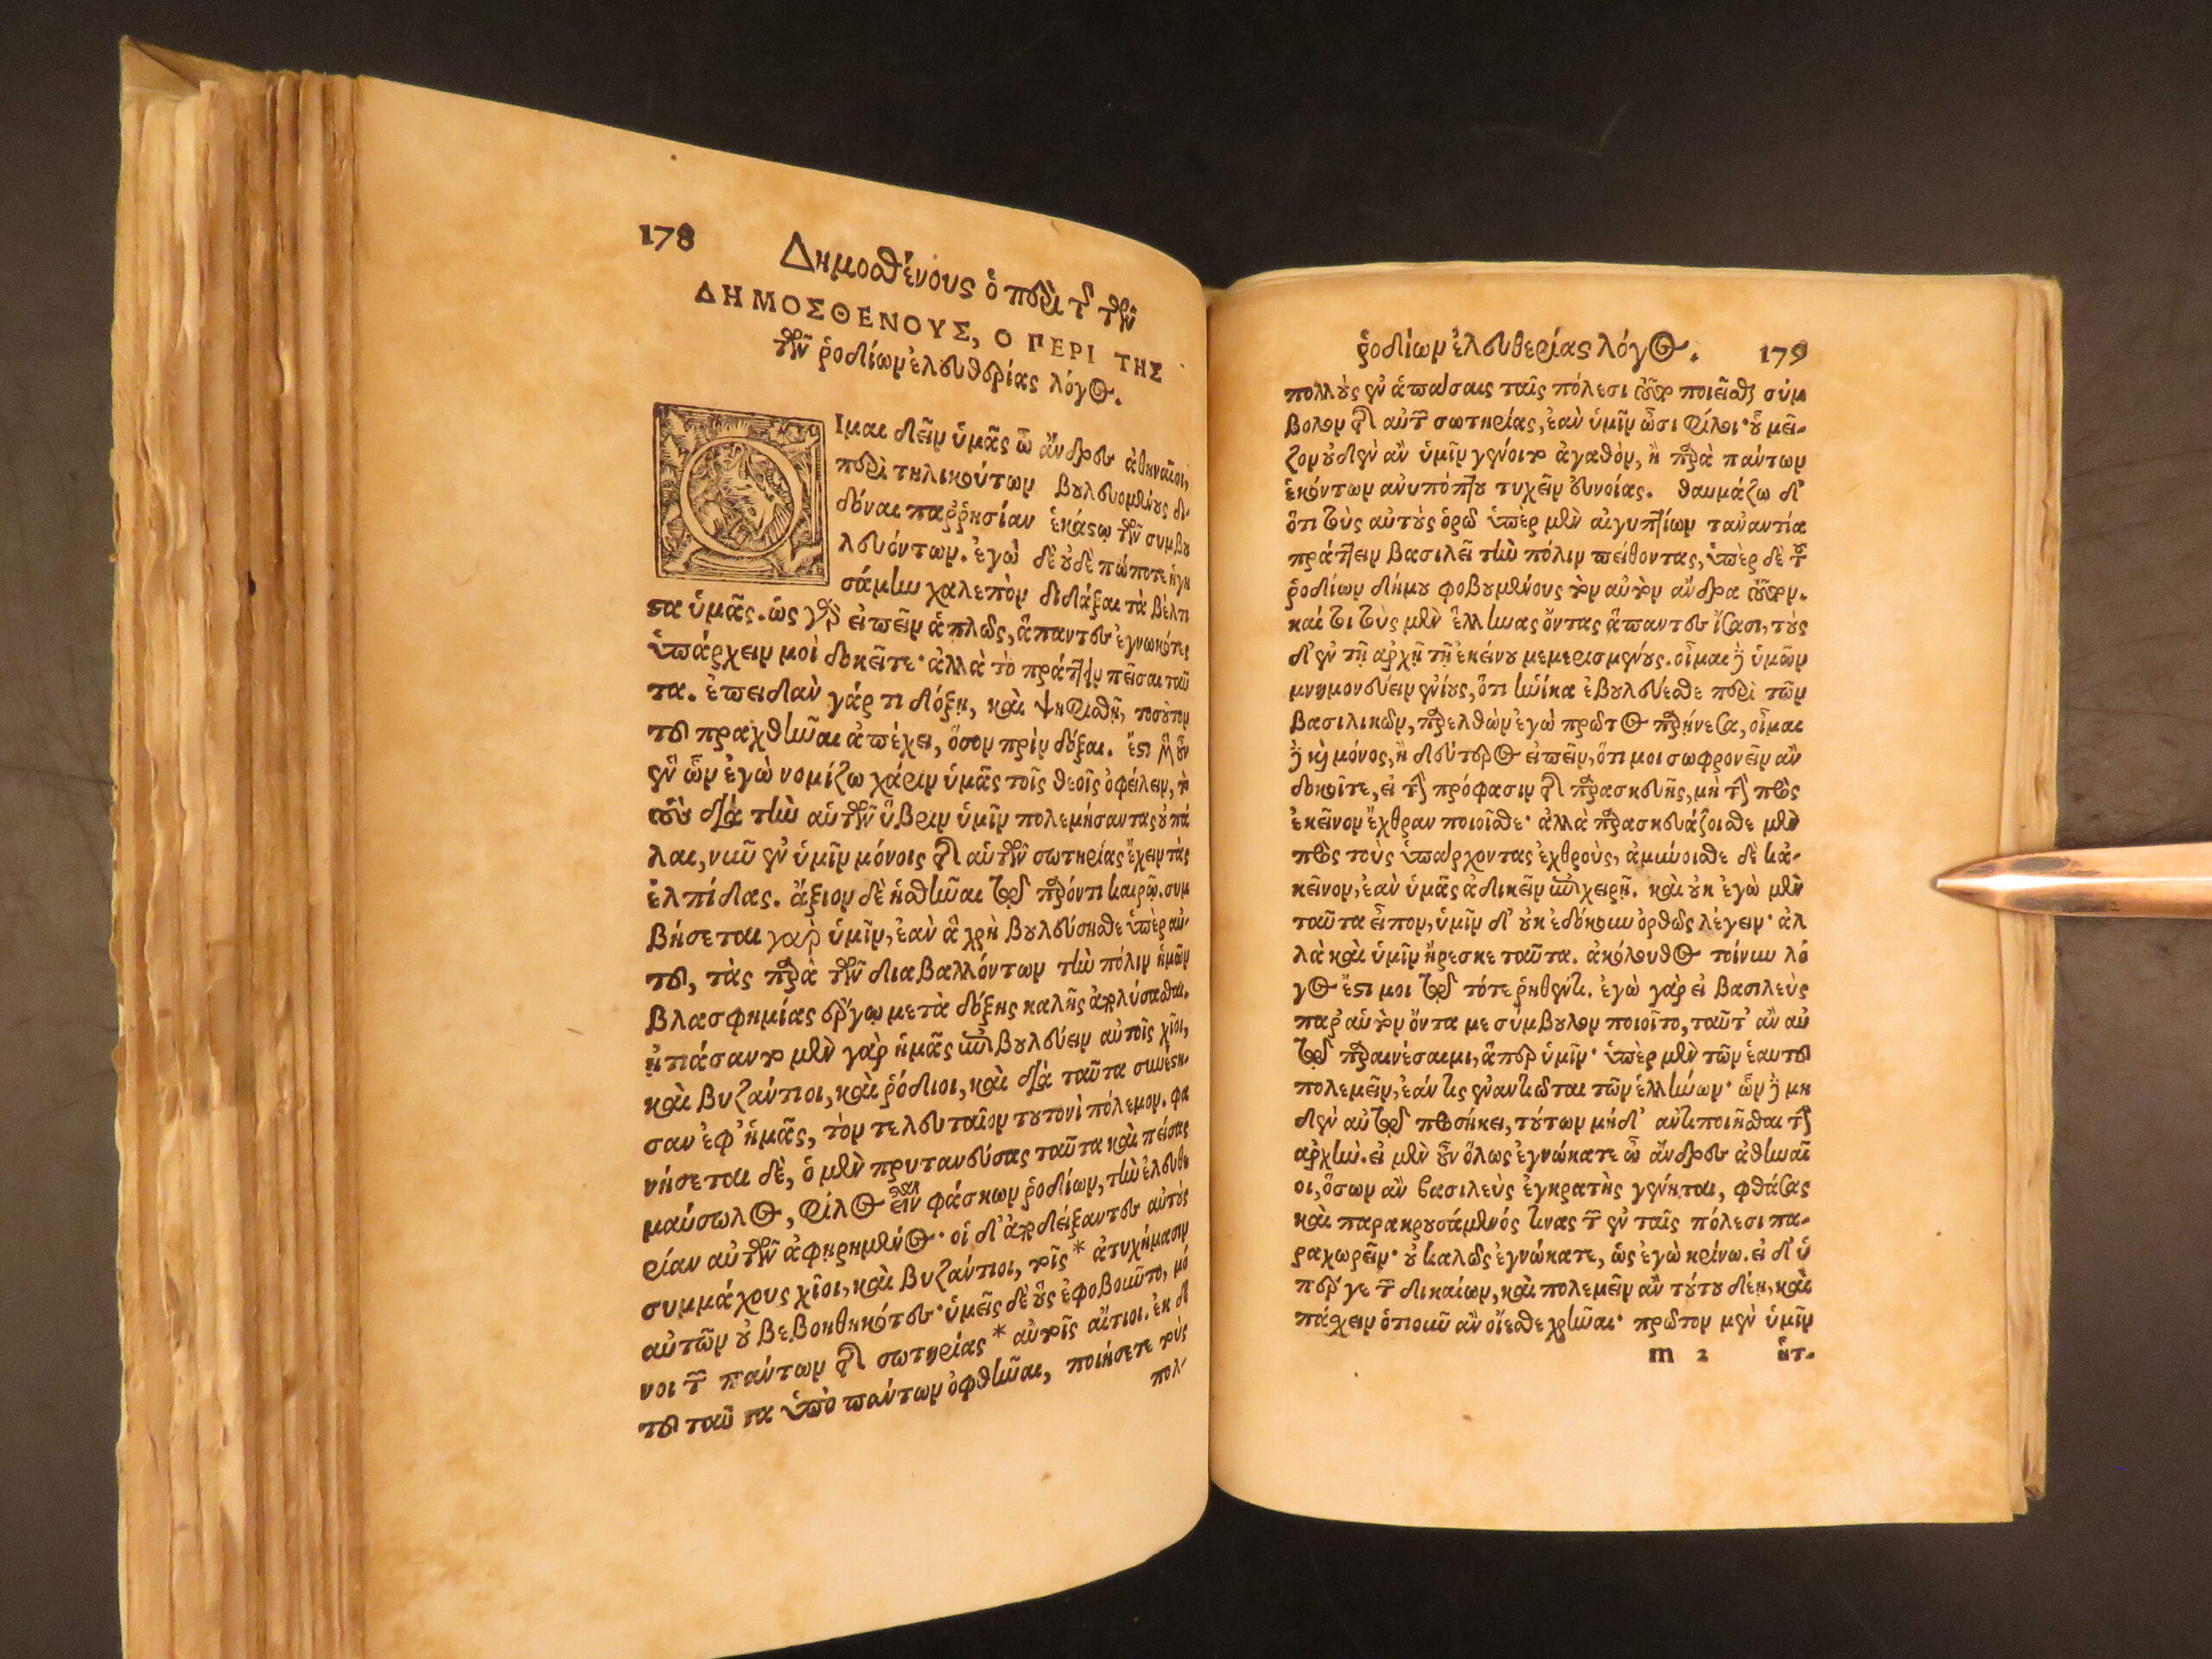 178 Δημοσθένους ὁ περὶ τ τῶν
ΔΗΜΟΣΘΕΝΟΥΣ, Ο ΠΕΡΙ ΤΗΣ
τῶν ῥοδίων ἐλευθερίας λόγος.
ΟΙμαι δεῖν ὑμᾶς ὦ ἄνδρες ἀθηναῖοι,
περὶ τηλικούτων βουλευομένους δι-
δόναι παῤῥησίαν ἑκάστῳ τῶν συμβου
λευόντων. ἐγὼ δὲ οὐδὲ πώποτε ἡγη
σάμην χαλεπὸν διδάξαι τὰ βέλτι
στα ὑμᾶς. ὡς γὰρ εἰπεῖν ἁπλῶς, ἅπαντες ἐγνωκότες
ὑπάρχειν μοὶ δοκεῖτε· ἀλλὰ τὸ πράττειν πεῖσαι ταῦ
τα. ἐπειδὰν γάρ τι δόξῃ, καὶ ψηφισθῇ, τοσοῦτον
τοῦ πραχθῆναι ἀπέχει, ὅσον πρὶν δόξαι. ἔστι μὲν οὖν
ἓν ὧν ἐγὼ νομίζω χάριν ὑμᾶς τοῖς θεοῖς ὀφείλειν, τὸ
τοὺς διὰ τὴν αὑτῶν ὕβριν ὑμῖν πολεμήσαντας οὐ πά
λαι, νῦν ἐν ὑμῖν μόνοις τῆς αὑτῶν σωτηρίας ἔχειν τὰς
ἐλπίδας. ἄξιον δὲ ἡσθῆναι τῷ παρόντι καιρῷ. συμ
βήσεται γὰρ ὑμῖν, ἐὰν ἃ χρὴ βουλεύσησθε ὑπὲρ αὐ-
τοῦ, τὰς παρὰ τῶν διαβαλλόντων τὴν πόλιν ἡμῶν
βλασφημίας ἔργῳ μετὰ δόξης καλῆς ἀπολύσασθαι.
ᾐτιάσαντο μὲν γὰρ ἡμᾶς ἐπιβουλεύειν αὐτοῖς χῖοι,
καὶ βυζάντιοι, καὶ ῥόδιοι, καὶ διὰ ταῦτα συνέστη-
σαν ἐφ' ἡμᾶς, τὸν τελευταῖον τουτονὶ πόλεμον. φα
νήσεται δὲ, ὁ μὲν πρυτανεύσας ταῦτα καὶ πείσας
μαύσωλος, φίλος εἶναι φάσκων ῥοδίων, τὴν ἐλευθε
ρίαν αὐτῶν ἀφῃρημένος· οἱ δ' ἀποδείξαντες αὑτοὺς
συμμάχους χῖοι, καὶ βυζάντιοι, τοῖς * ἀτυχήμασιν
αὐτῶν οὐ βεβοηθηκότες· ὑμεῖς δὲ οὓς ἐφοβοῦντο, μό
νοι τῶν πάντων τῆς σωτηρίας * αὐτοῖς αἴτιοι. ἐκ δὲ
τοῦ ταῦτα ὑπὸ πάντων ὀφθῆναι, ποιήσετε τοὺς
πολ-
ῥοδίων ἐλευθερίας λόγος. 179
πολλοὺς ἐν ἁπάσαις ταῖς πόλεσι τοῦτο ποιεῖσθαι σύμ
βολον τῆς αὑτῶν σωτηρίας, ἐὰν ὑμῖν ὦσι φίλοι· οὗ μεῖ-
ζον οὐδὲν ἂν ὑμῖν γένοιτο ἀγαθὸν, ἢ παρὰ πάντων
ἑκόντων ἀνυπόπτου τυχεῖν εὐνοίας. θαυμάζω δ'
ὅτι τοὺς αὐτοὺς ὁρῶ ὑπὲρ μὲν αἰγυπτίων τἀναντία
πράττειν βασιλεῖ τὴν πόλιν πείθοντας, ὑπὲρ δὲ τοῦ
ῥοδίων δήμου φοβουμένους τὸν αὐτὸν ἄνδρα τοῦτον.
καί τι τοὺς μὲν ἕλληνας ὄντας ἅπαντες ἴσασι, τοὺς
δ' ἐν τῇ ἀρχῇ τῇ ἐκείνου μεμερισμένους. οἶμαι δὲ ὑμῶν
μνημονεύειν ἐνίους, ὅτι ἡνίκα ἐβουλεύεσθε περὶ τῶν
βασιλικῶν, παρελθὼν ἐγὼ πρῶτος παρῄνεσα, οἶμαι
δὲ καὶ μόνος, ἢ δεύτερος εἰπεῖν, ὅτι μοι σωφρονεῖν ἂν
δοκοῖτε, εἰ τὴν πρόφασιν τῆς παρασκευῆς, μὴ τὴν πρὸς
ἐκεῖνον ἔχθραν ποιοῖσθε· ἀλλὰ παρασκευάζοισθε μὲν
πρὸς τοὺς ὑπάρχοντας ἐχθροὺς, ἀμύνοισθε δὲ κἀ-
κεῖνον, ἐὰν ὑμᾶς ἀδικεῖν ἐπιχειρῇ. καὶ οὐκ ἐγὼ μὲν
ταῦτα εἶπον, ὑμῖν δ' οὐκ ἐδόκουν ὀρθῶς λέγειν· ἀλ
λὰ καὶ ὑμῖν ἤρεσκε ταῦτα. ἀκόλουθος τοίνυν λό
γος ἔστι μοι τῷ τότε ῥηθέντι. ἐγὼ γὰρ εἰ βασιλεὺς
παρ' αὑτὸν ὄντα με σύμβουλον ποιοῖτο, ταῦτ' ἂν αὐ
τῷ παραινέσαιμι, ἅπερ ὑμῖν· ὑπὲρ μὲν τῶν ἑαυτοῦ
πολεμεῖν, ἐάν τις ἐναντιῶται τῶν ἑλλήνων· ὧν δὲ μη
δὲν αὐτῷ προσήκει, τούτων μήδ' ἀντιποιῆσθαι τὴν
ἀρχήν. εἰ μὲν οὖν ὅλως ἐγνώκατε ὦ ἄνδρες ἀθηναῖ
οι, ὅσων ἂν βασιλεὺς ἐγκρατὴς γένηται, φθάσας
καὶ παρακρουσάμενός τινας τῶν ἐν ταῖς πόλεσι πα-
ραχωρεῖν· οὐ καλῶς ἐγνώκατε, ὡς ἐγὼ κρίνω. εἰ δ' ὑ
πέρ γε τῶν δικαίων, καὶ πολεμεῖν ἂν τούτου δέῃ, καὶ
πάσχειν ὁτιοῦν ἂν οἴεσθε χρῆναι· πρῶτον μὲν ὑμῖν
m 2 ἧτ-